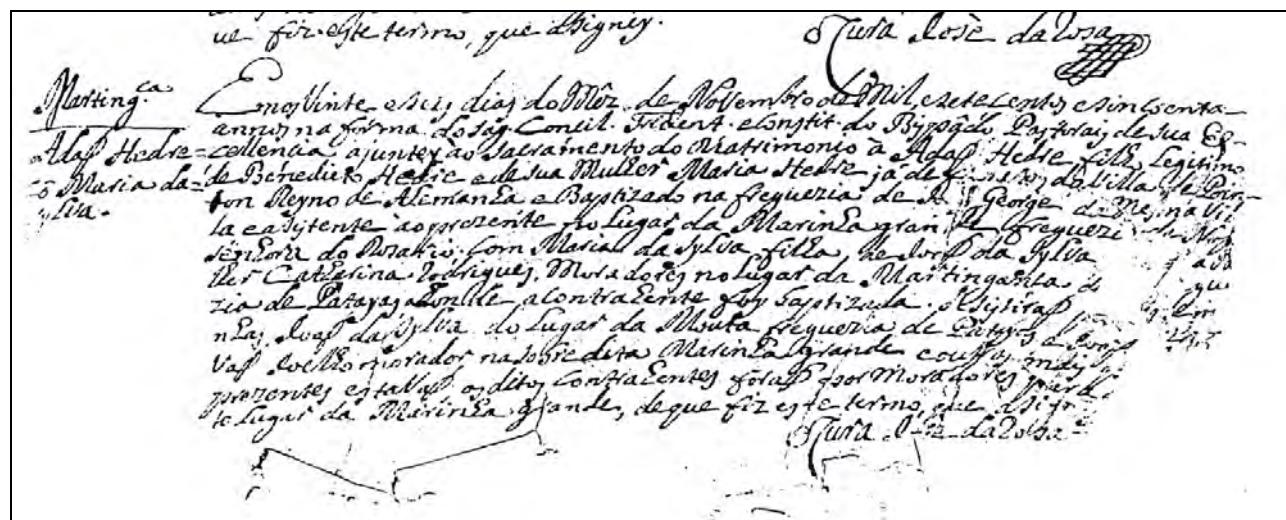 ue fiz este termo, que asigney.
o Cura Jozê da Roza
Marting.ca
Adaõ Hedre
cõ Maria da
sylva.
Em os Vinte e seis dias do Mês de Novembro de Mil, e sete Centos e sincoenta
annos na forma do sag. Concil. Trident. e Constit. do Byspado Pastorais de sua Ex=
=cellencia ajuntey ao Sacramento do Matrimonio a Adaõ Hedre filho Legitimo
de Benedicto Hedre e de sua Mulher Maria Hedre já de da Villa de
ton Reyno de Alemanha e Baptizado na freguezia de S. George
la e asistente ao prezente no Lugar da Marinha gran freguezi
senhora do Rozario, com Maria da Sylva filha de Jozeph da Sylva
lher Catherina Rodrigues, Moradores no lugar da Martinganha
zia de Patayas aonde a contrahente foy baptizada. asistiraõ
nhas Joaõ da Sylva do Lugar da Mouta freguezia de Patayas e
vaõ Coelho morador na sobredita Marinha grande e outras mais
prezentes estavaõ os ditos Contrahentes foraõ ser Moradores para
te lugar da Marinha grande, de que fiz este termo, que asig
o Cura da Roza